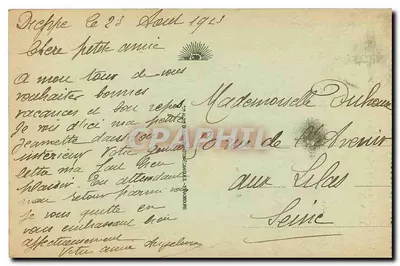 Dieppe le 23 Aout 1923
Chère petite amie
A mon tour de vous
souhaiter bonnes
vacances et bon repos
Je vois d'ici ma petite
Jeannette dans son
intérieur Votre
lettre m'a fait bien
plaisir. En attendant
mon retour parmi vous
Je vous quitte en
vous embrassant bien
affectueusement
Votre amie
Mademoiselle
Rue de l'Avenir
aux Lilas
Seine
CARTOPH